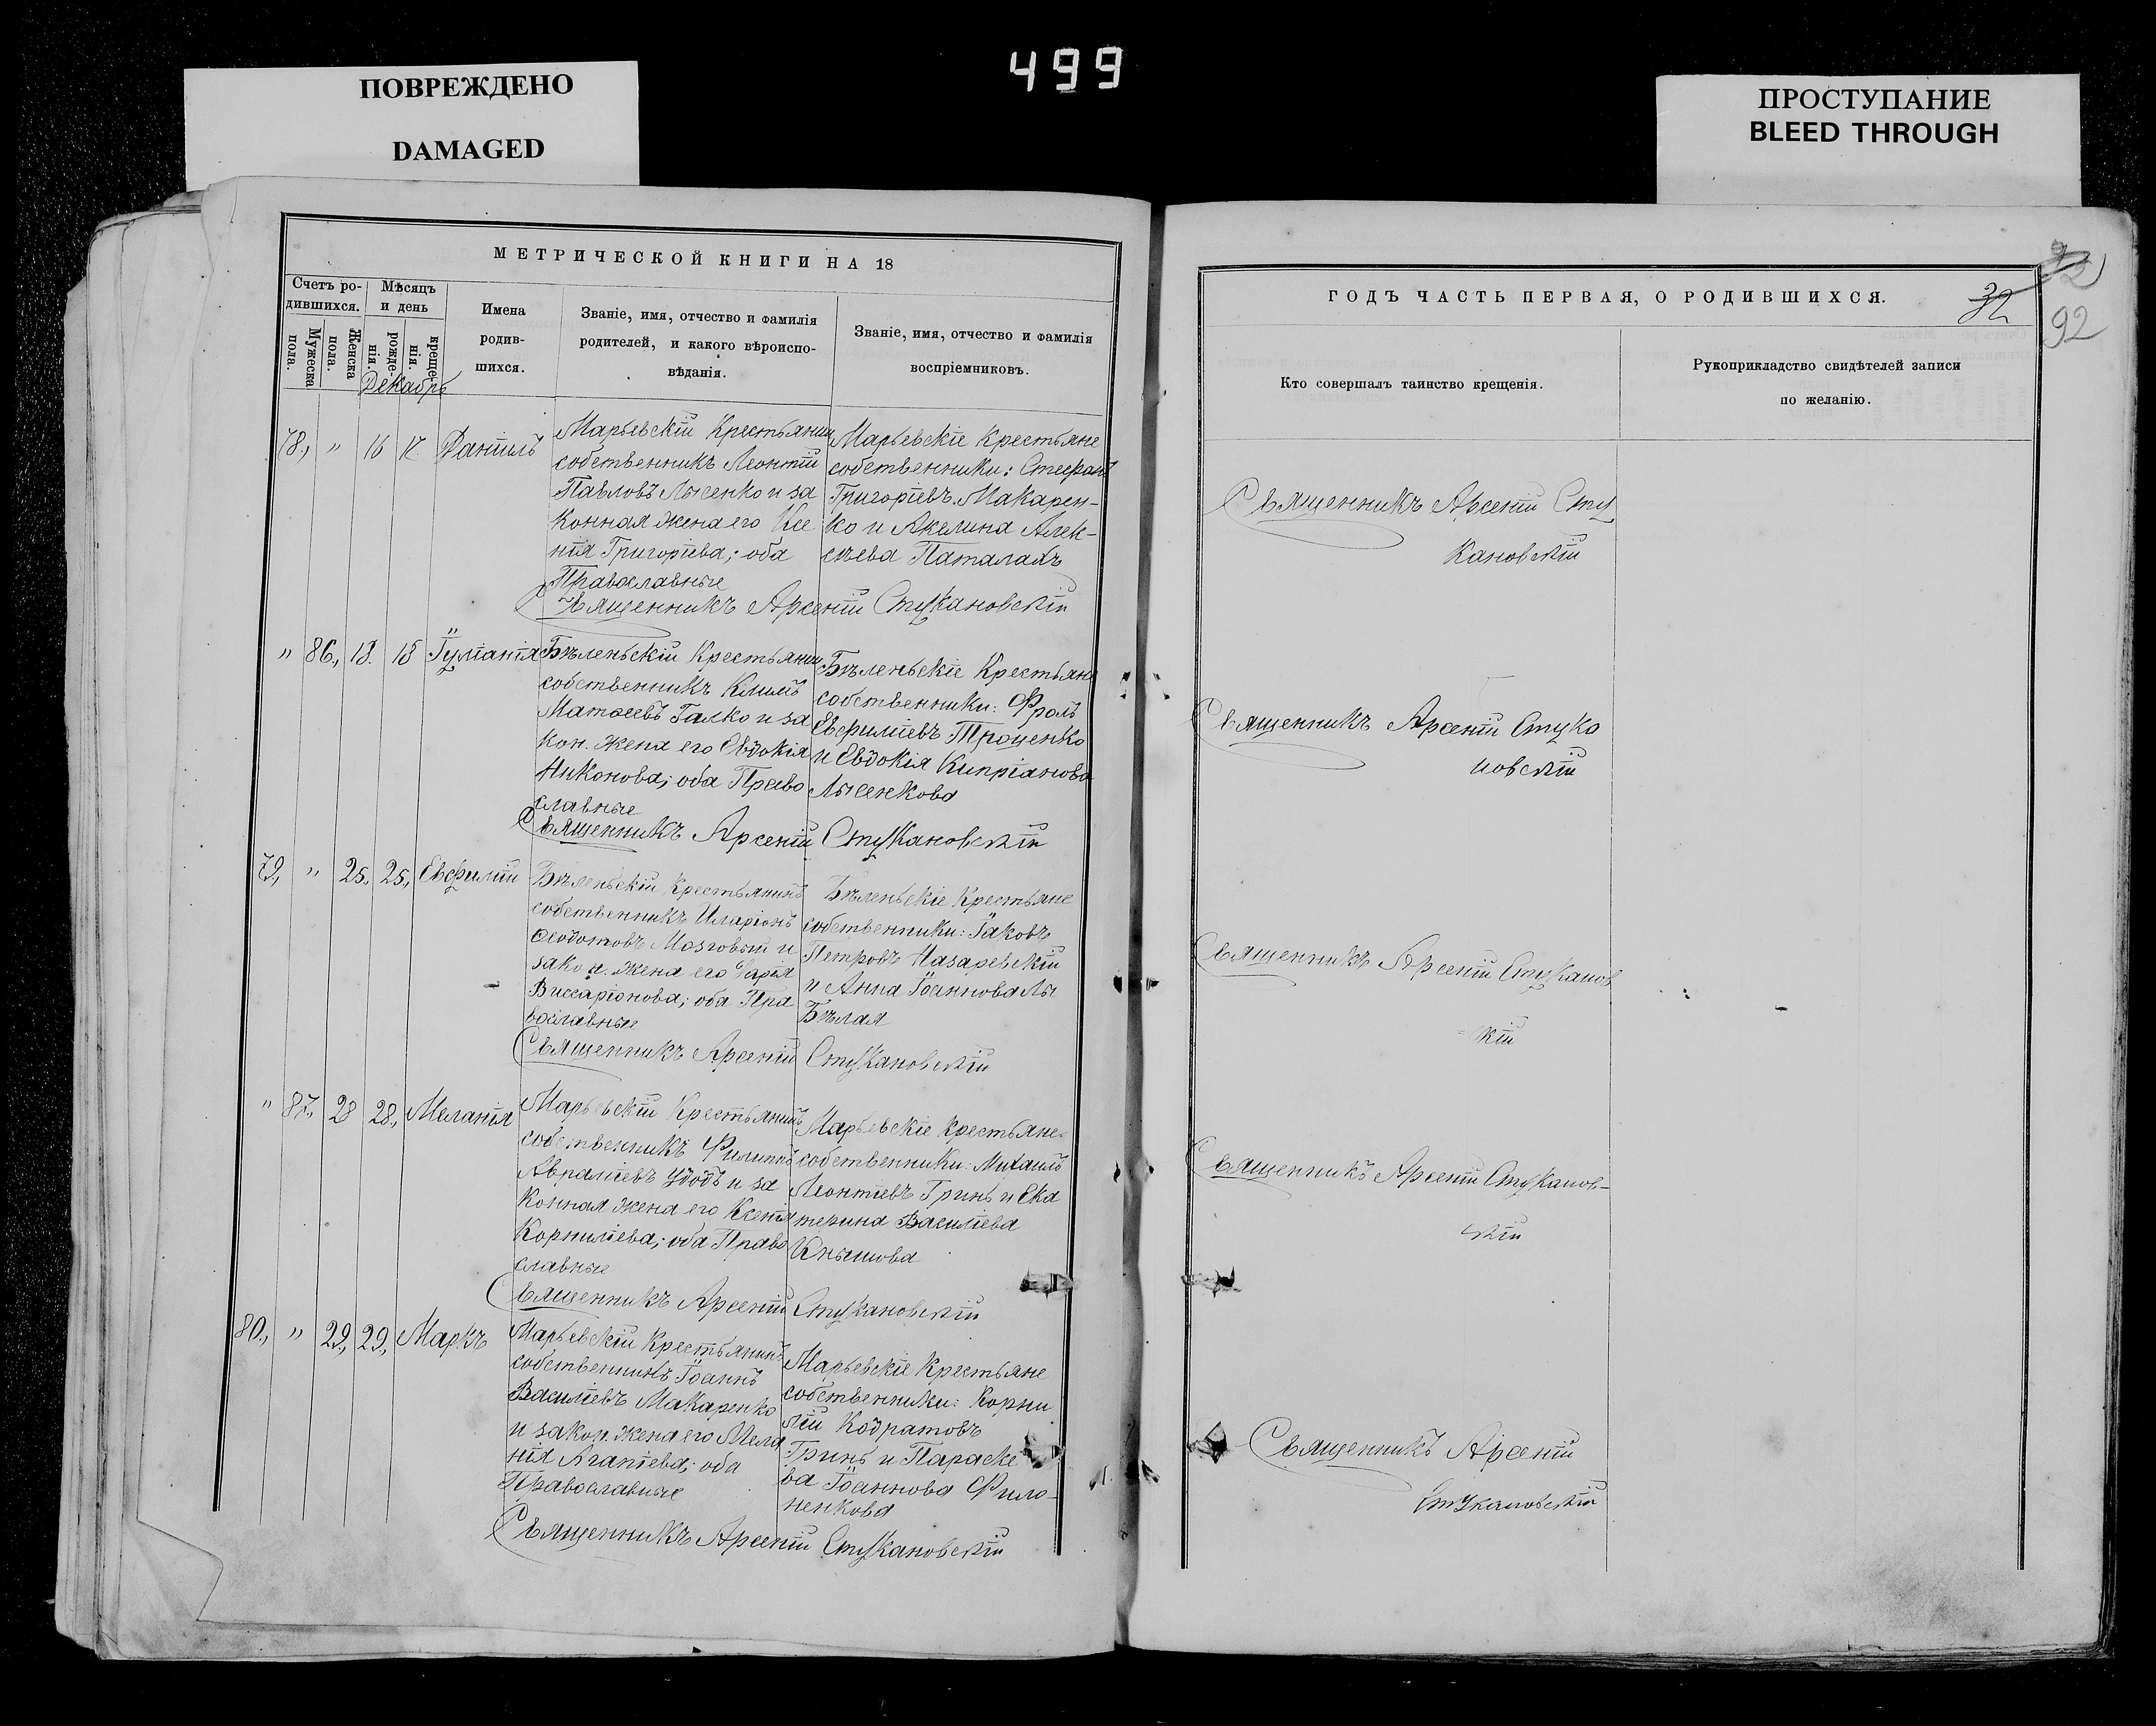 499
ПОВРЕЖДЕНО
DAMAGED
ПРОСТУПАНИЕ
BLEED THROUGH
МЕТРИЧЕСКОЙ КНИГИ НА 18
Счетъ ро-
дившихся.
Мужеска
пола.
Женска
пола.
Мѣсяцъ
и день
рожде-
нія.
креще-
нія.
Имена
родив-
шихся.
Званіе, имя, отчество и фамилія
родителей, и какого вѣроиспо-
вѣданія.
Званіе, имя, отчество и фамилія
воспріемниковъ.
Декабрь
78., " 16 17. Даніилъ
Марьевскій Крестьянин
собственникъ Леонтій
Павловъ Лысенко и за
конная жена его Ксе
нія Григоріева; оба
Православные
Марьевскіе Крестьяне
собственники: Стефанъ
Григоріевъ Макарен-
ко и Акелина Алек-
сѣева Паталахъ
Священникъ Арсеній Стукановскій
" 86., 18. 18 Іуліанія
Бѣленьскій Крестьянин
собственникъ Климъ
Матѳеевъ Галко и за
кон. жена его Евдокія
Никонова; оба Право
славные
Бѣленьскіе Крестьяне
собственники: Фролъ
Евфиміевъ Троценко
и Евдокія Кипріанова
Лысенкова
Священникъ Арсеній Стукановскій
79, " 25., 25., Евфимій
Бѣленьскій Крестьянинъ
собственникъ Иларіонъ
Ѳеодотовъ Мозговый и
закон. жена его Дарія
Виссаріонова; оба Пра
вославные
Бѣленьскіе Крестьяне
собственники: Іаковъ
Петровъ Назаревскій
и Анна Іоаннова
Бѣлая
Священникъ Арсеній Стукановскій
" 87., 28 28., Меланія
Марьевскій Крестьянинъ
собственникъ Филиппъ
Авраміевъ Удодъ и за
конная жена его Ксенія
Корниліева; оба Право
славные
Марьевскіе Крестьяне
собственники: Михаилъ
Леонтіевъ Гринь и Ека
терина Василіева
Кнышова
Священникъ Арсеній Стукановскій
80., " 29., 29., Маркъ
Марьевскій Крестьянинъ
собственникъ Іоаннъ
Василіевъ Макаренко
и закон. жена его Мела
нія Агапіева; оба
Православные
Марьевскіе Крестьяне
собственники: Корни
лій Кодратовъ
Гринь и Параске
ва Іоаннова Фило-
ненкова
Священникъ Арсеній Стукановскій
ГОДЪ ЧАСТЬ ПЕРВАЯ, О РОДИВШИХСЯ.
32
92
Кто совершалъ таинство крещенія.
Рукоприкладство свидѣтелей записи
по желанію.
Священникъ Арсеній Сту
кановскій
Священникъ Арсеній Стука
новскій
Священникъ Арсеній Стуканов
кій
Священникъ Арсеній Стуканов-
скій
Священникъ Арсеній
Стукановскій